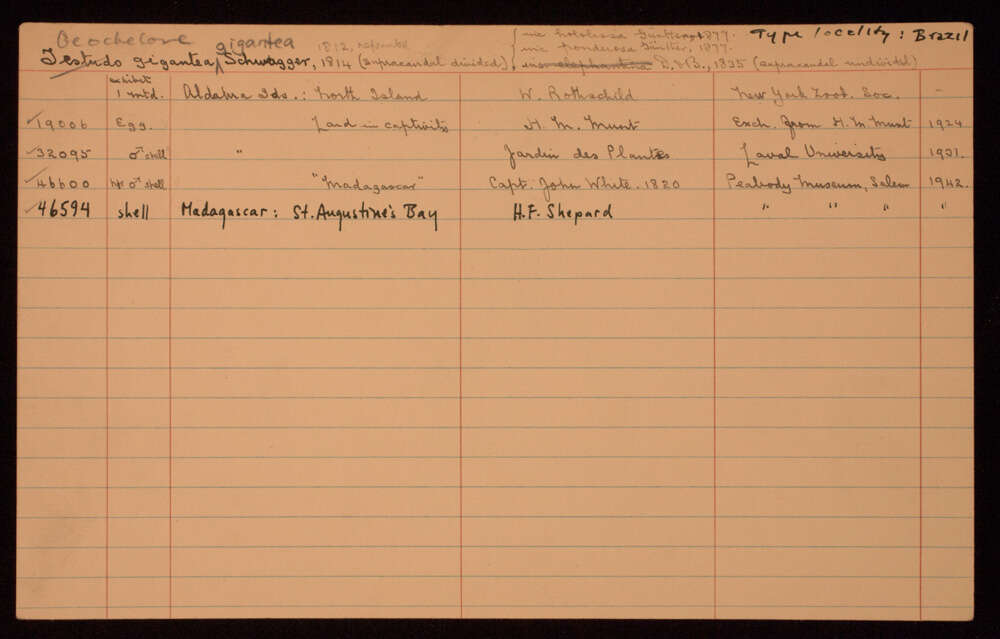 Geochelone gigantea
Testudo gigantea Schweigger, 1814 (supracaudal divided), 1812, reprinted { nic hololissa Günther, 1877.
nic ponderosa Günther, 1877.
nic elephantina D. & B., 1835 (supracaudal undivided)
Type locality: Brazil
exhibit 1 mtd. Aldabra Ids.: North Island W. Rothschild New York Zool. Soc. -
✓19006 Egg. Laid in captivity H. M. Munt Exch. from H. M. Munt 1924
✓32095 ♂ shell " Jardin des Plantes Laval University 1931.
✓46600 ♂ shell "Madagascar" Capt. John White. 1820 Peabody Museum, Salem 1942.
✓46594 shell Madagascar: St. Augustine's Bay H.F. Shepard " " " "